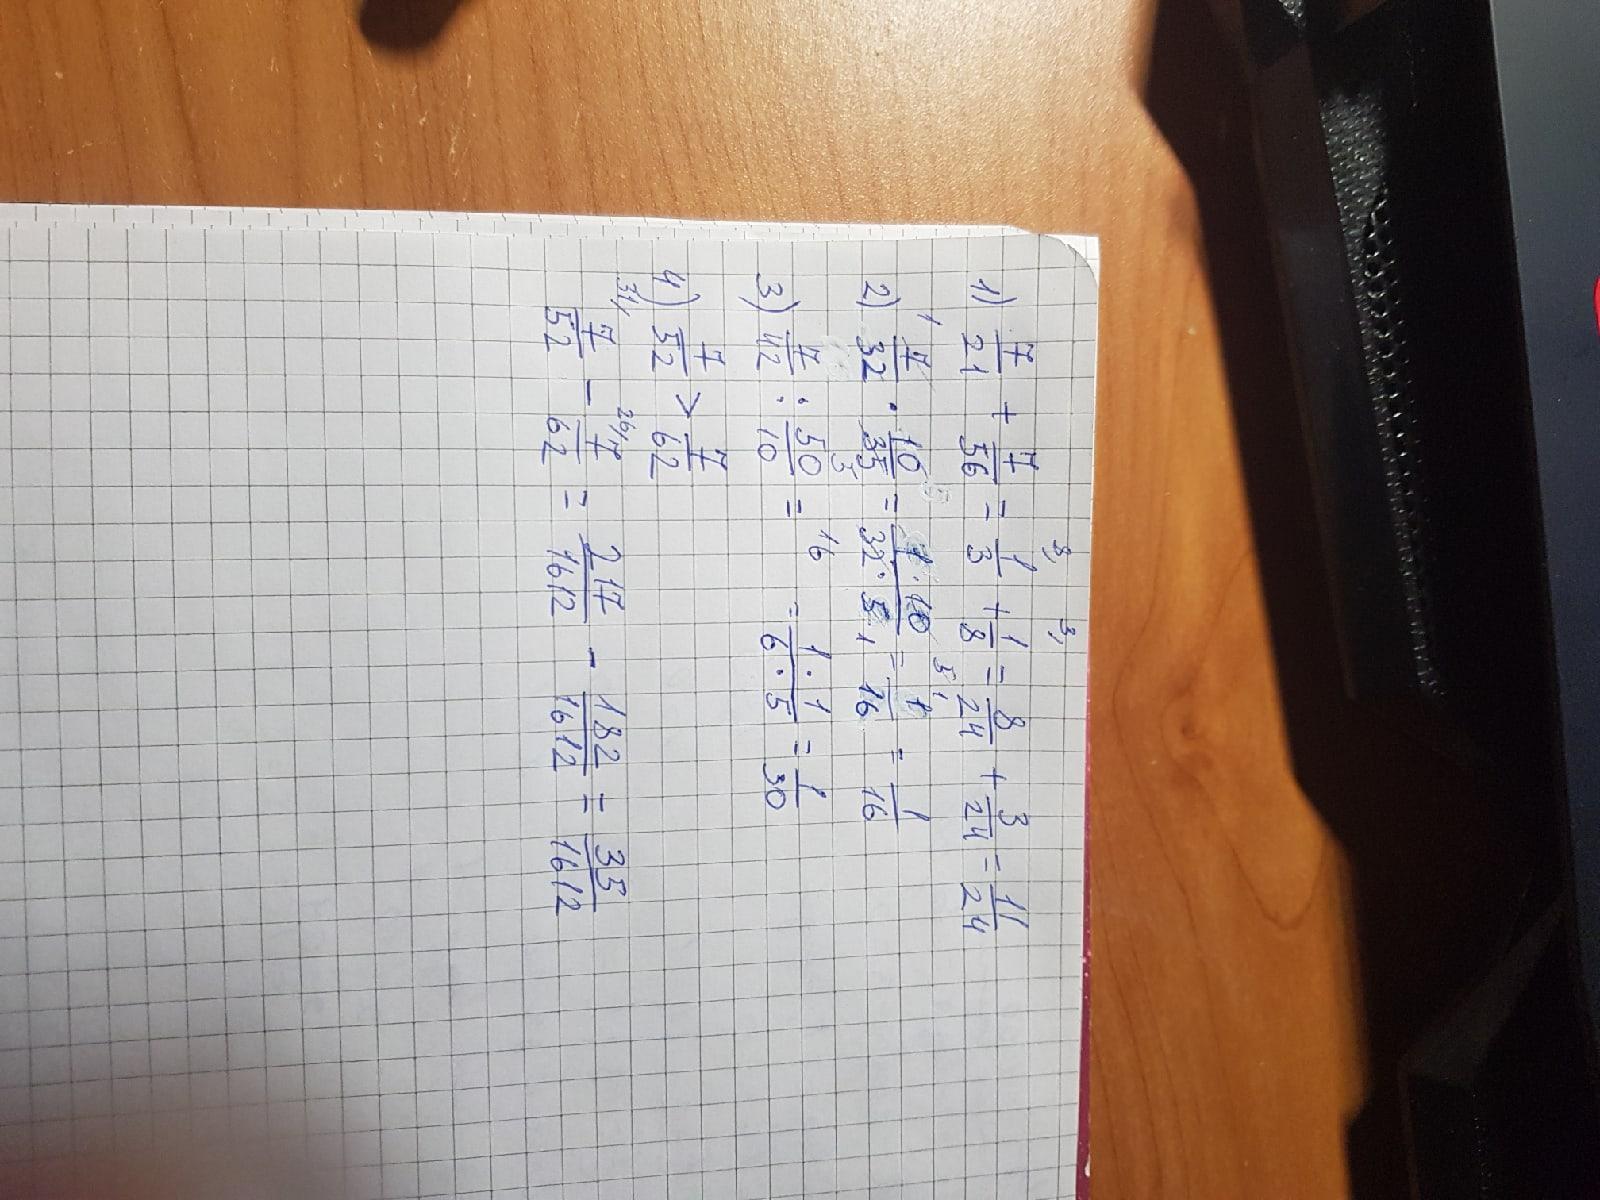 1) 7/21 + 7/56 = 1/3 8/ + 1/8 3/ = 8/24 + 3/24 = 11/24
2) 7/32 · 10/35 = 1·10/32·5 = 1/16 = 1/16
3) 7/42 : 50/10 = 1·1/6·5 = 1/30
4) 7/52 > 7/62
31/ 7/52 − 26/ 7/62 = 217/1612 − 182/1612 = 35/1612